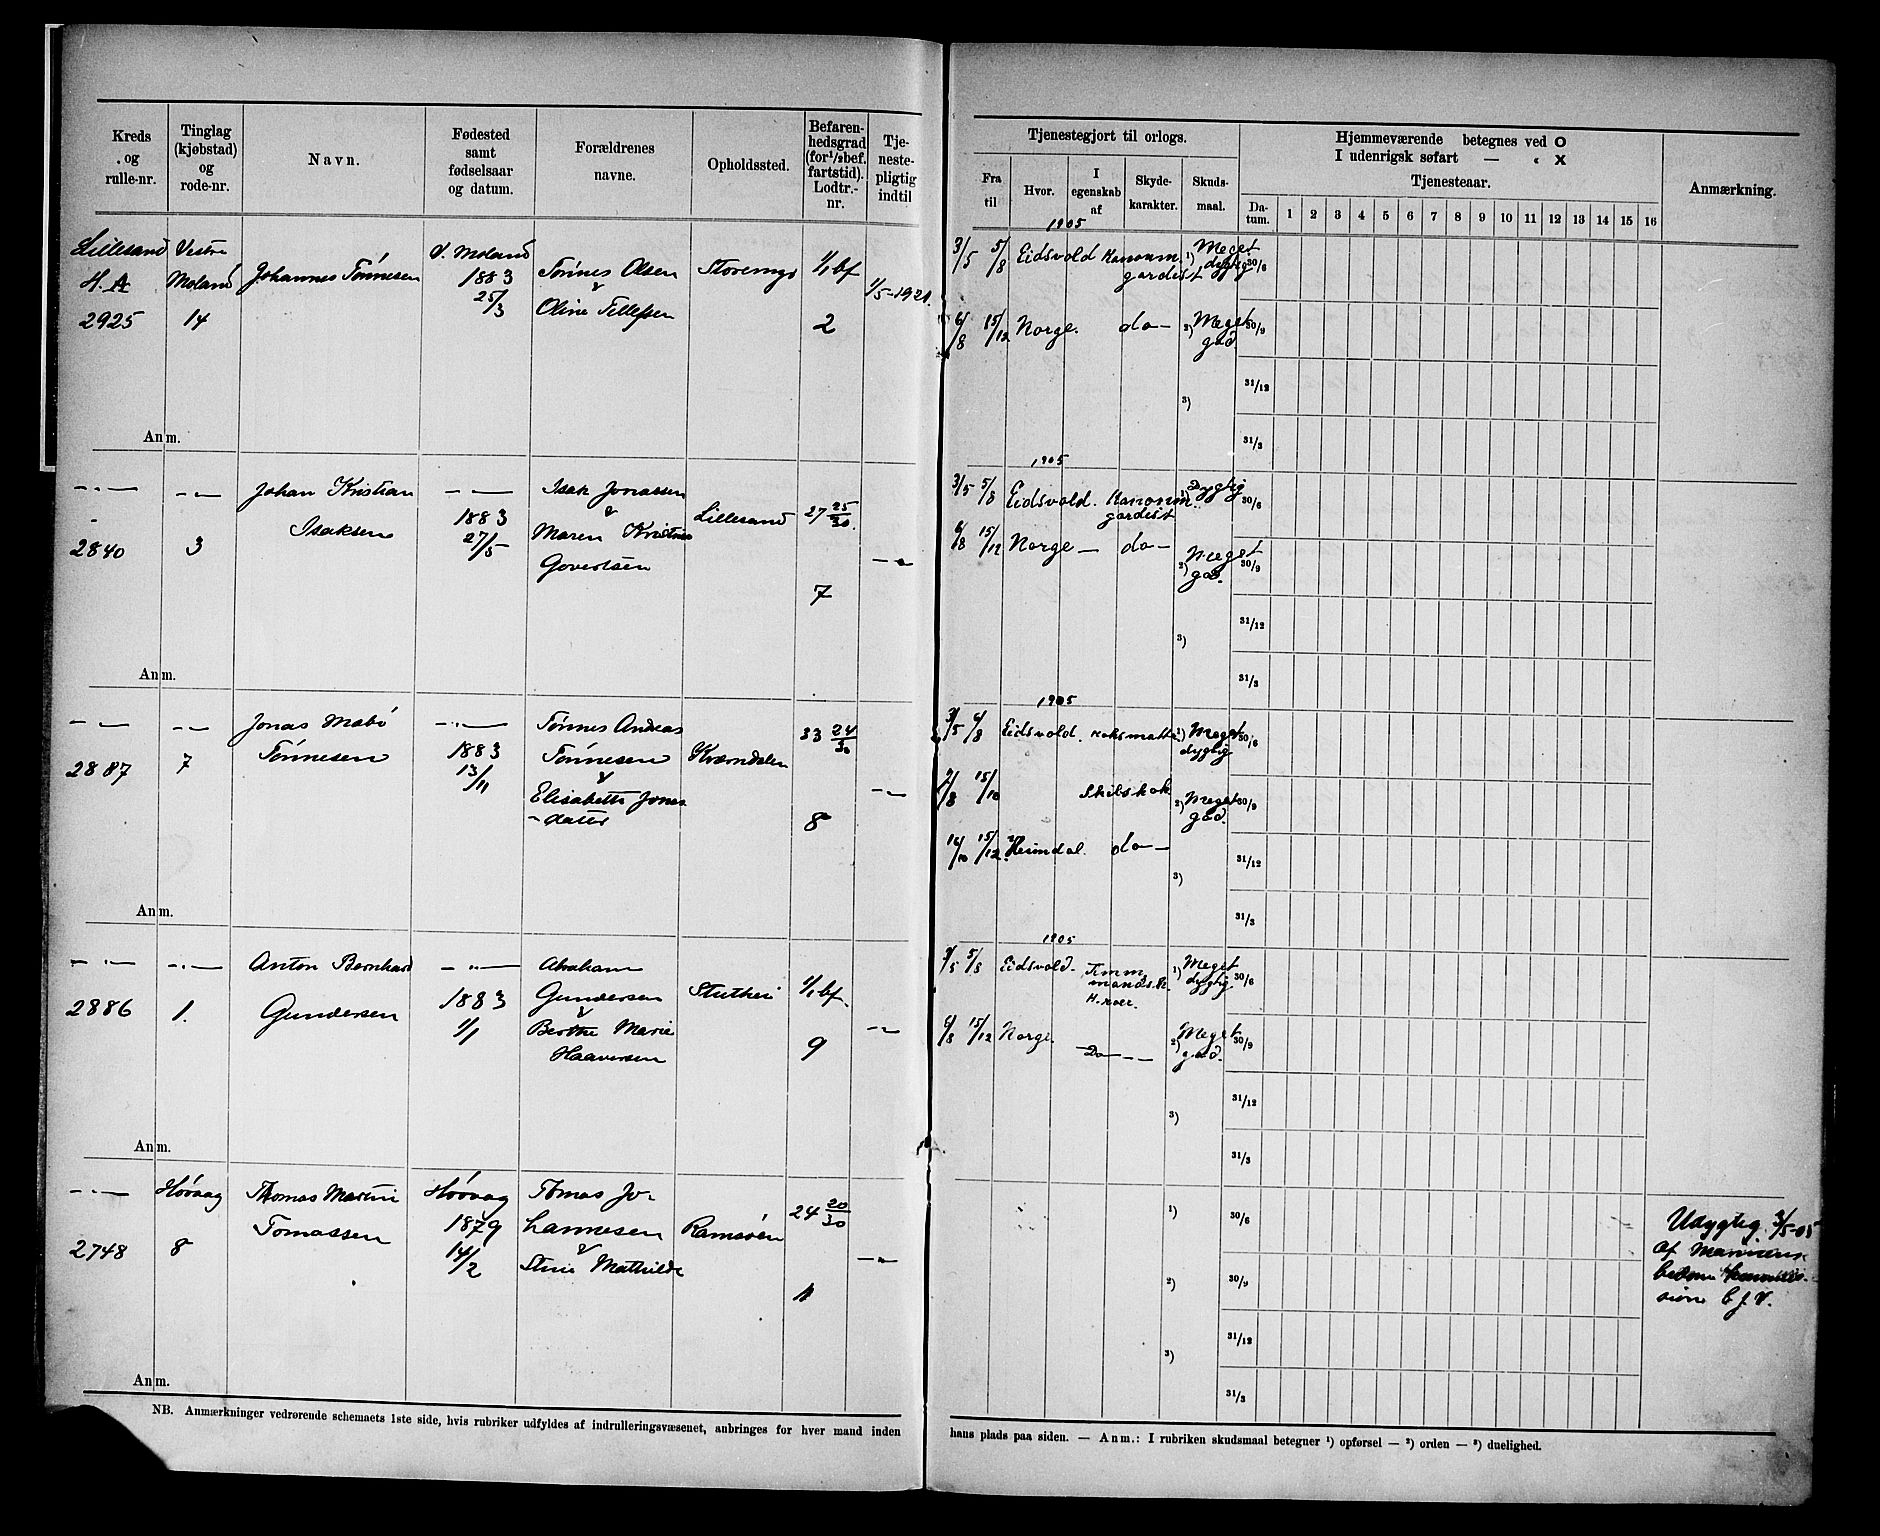 Kreds og rulle-nr.
Tinglag (kjøbstad) og rode-nr.
Navn.
Fødested samt fødselsaar og datum.
Forældrenes navne.
Opholdssted.
Befaren-hedsgrad (for 1/2 bef. fartstid). Lodtr.-nr.
Tje-neste-pligtig indtil
Tjenestegjort til orlogs.
Fra til
Hvor.
I egenskab af
Skyde-karakter.
Skuds-maal.
Hjemmeværende betegnes ved O
I udenrigsk søfart — " X
Tjenesteaar.
Da-tum. 1 2 3 4 5 6 7 8 9 10 11 12 13 14 15 16
Anmærkning.
Lillesand
H. A
2925
Vestre
Moland
14
Johannes Tønnesen
V. Moland
1883
25/3
Tønnes Olsen
&
Oline Tellefsen
1/1 bf
2
1/5-1921.
1905
3/5 5/8 Eidsvold Kanonm.
gardist
1) Meget
dygtig
30/6
6/8 15/12 Norge. do —
2) Meget
god.
30/9
3)
31/12
31/3
Anm.
— " —
2840
— " —
3
Johan Kristian
Isaksen
— " —
1883
27/5
Isak Jonassen
&
Maren Kristine
Govertsen
Lillesand
27 25/30.
7
— " —
1905
3/5 5/8 Eidsvold. Kanonm.
gardist
1) Dygtig
30/6
6/8 15/12 Norge — do —
2) Meget
god.
30/9
3)
31/12
31/3
Anm.
— " —
2887
— " —
7
Jonas Mabø
Tønnesen
— " —
1883
13/11
Tønnes Andreas
Tønnesen
&
Elisabeth Jonas
-datter
Kværndalen
33 24/30
8
— " —
1905
3/5 6/8 Eidsvold. koksmatte
1) Meget
dygtig
30/6
7/8 15/10 Skibskok
2) Meget
god.
30/9
16/10 15/12 Heimdal. do —
3)
31/12
31/3
Anm.
— " —
2886
— " —
1.
Anton Bernhard
Gundersen
— " —
1883
1/1
Abraham
Gundersen
&
Berthe Marie
Haaversen
1/1 bf.
9
— " —
1905
3/5 5/8 Eidsvold.
1) Meget
dygtig.
30/6
6/8 15/12 Norge. — Do — —
2) Meget
god.
30/9
3)
31/12
31/3
Anm.
— " —
2748
Høvaag
8
Thomas Martin
Tomassen
Høvaag
1879
14/2
Tomas Jo-
hannesen
&
Stine Mathilde
Ramsøen
24 20/30
1
— " —
1)
30/6
2)
30/9
3)
31/12
31/3
Udygtig 3/5-05
af Marinens
Anm.
NB. Anmærkninger vedrørende schemaets 1ste side, hvis rubriker udfyldes af indrulleringsvæsenet, anbringes for hver mand inden
hans plads paa siden. — Anm.: I rubriken skudsmaal betegner ¹) opførsel — ²) orden — ³) duelighed.